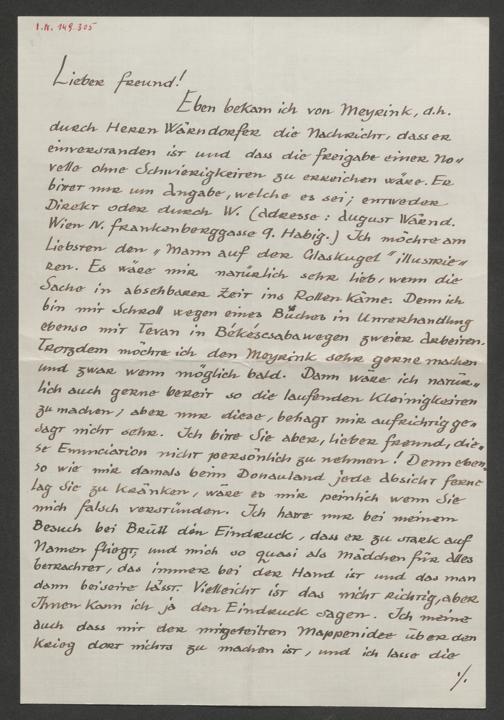 I.N. 149.305
Lieber Freund!
Eben bekam ich von Meyrink, d.h.
durch Herrn Wärndorfer die Nachricht, dass er
einverstanden ist und dass die Freigabe einer No„
velle ohne Schwierigkeiten zu erreichen wäre. Er
bittet mir um Angabe, welche es sei; entweder
Direkt oder durch W. (Adresse: August Wärnd.
Wien IV. Frankenberggasse 9. Habig.) Ich möchte am
Liebsten den „Mann auf der Glaskugel" illustrie„
ren. Es wäre mir natürlich sehr lieb, wenn die
Sache in absehbarer Zeit ins Rollen käme. Denn ich
bin mit Schroll wegen eines Buches in Unterhandlung
ebenso mit Tevan in Békéscsaba wegen zweier Arbeiten.
Trotzdem möchte ich den Meyrink sehr gerne machen
und zwar wenn möglich bald. Dann wäre ich natür„
lich auch gerne bereit so die laufenden Kleinigkeiten
zu machen, aber nur diese, behagt mir aufrichtig ge„
sagt nicht sehr. Ich bitte Sie aber, lieber Freund, die„
se Enunciation nicht persönlich zu nehmen! Denn eben„
so wie mir damals beim Donauland jede Absicht ferne
lag Sie zu kränken, wäre es mir peinlich wenn Sie
mich falsch verstünden. Ich hatte nur bei meinem
Besuch bei Brüll den Eindruck, dass er zu stark auf
Namen fliegt, und mich so quasi als Mädchen für alles
betrachtet, das immer bei der Hand ist und das man
dann beiseite lässt. Vielleicht ist das nicht richtig, aber
Ihnen kann ich ja den Eindruck sagen. Ich meine
auch dass mit der mitgeteilten Mappenidee über den
Krieg dort nichts zu machen ist, und ich lasse die
./.